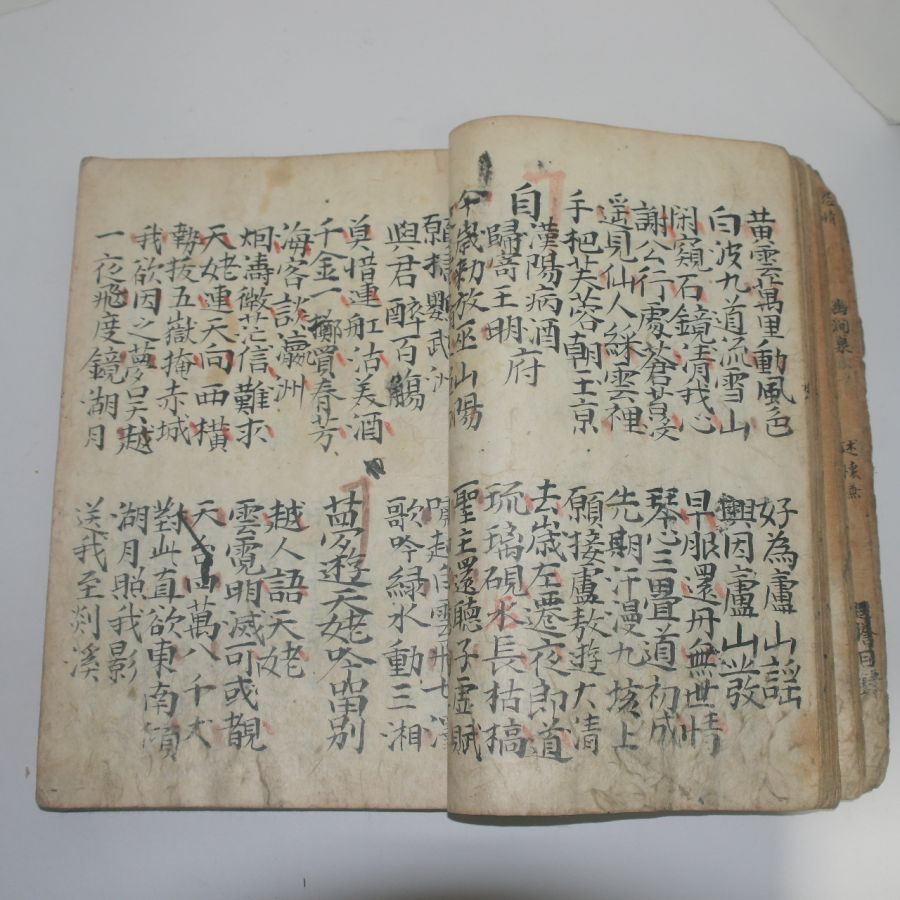 黃雲萬里動風色
白波九道流雪山
好為廬山謠
興因廬山發
閑窺石鏡清我心
謝公行處蒼苔沒
早服還丹無世情
琴心三疊道初成
遙見仙人綵雲裡
手把芙蓉朝玉京
先期汗漫九垓上
願接盧敖遊太清
自漢陽病酒
歸寄王明府
去歲左遷夜郎道
琉璃硯水長枯槁
今歲勅放巫山陽
聖主還聽子虛賦
願掃鸚武洲
與君醉百觴
嘯起白雲飛七澤
歌吟綠水動三湘
莫惜連舡沽美酒
千金一擲買春芳
夢遊天姥吟留別
海客談瀛洲
烟濤微茫信難求
越人語天姥
雲霓明滅可或覩
天姥連天向西橫
勢拔五嶽掩赤城
天台四萬八千丈
對此直欲東南傾
我欲因之夢吳越
一夜飛度鏡湖月
湖月照我影
送我至剡溪